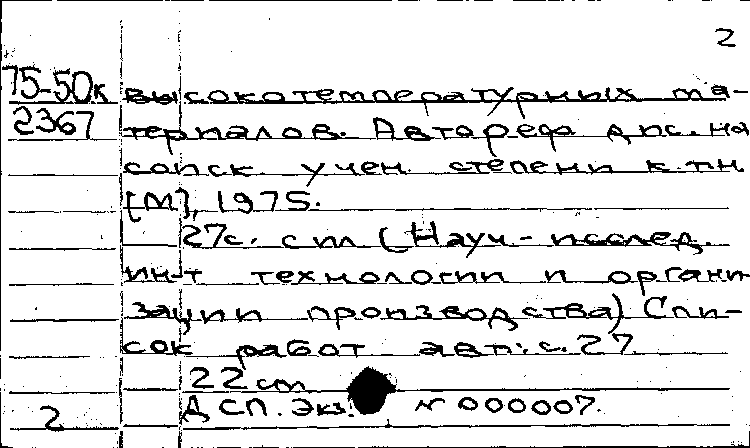 2
75-50к высокотемпературных ма-
2367 териалов. Автореф дис. на
соиск учен. степени к.т.н.
[М], 1975.
27с. с ил (Науч-исслед.
ин-т технологии и органи
зации производства) Спи-
сок работ авт: с. 27.
22 см
2 ДСП. Экз. N 000007.